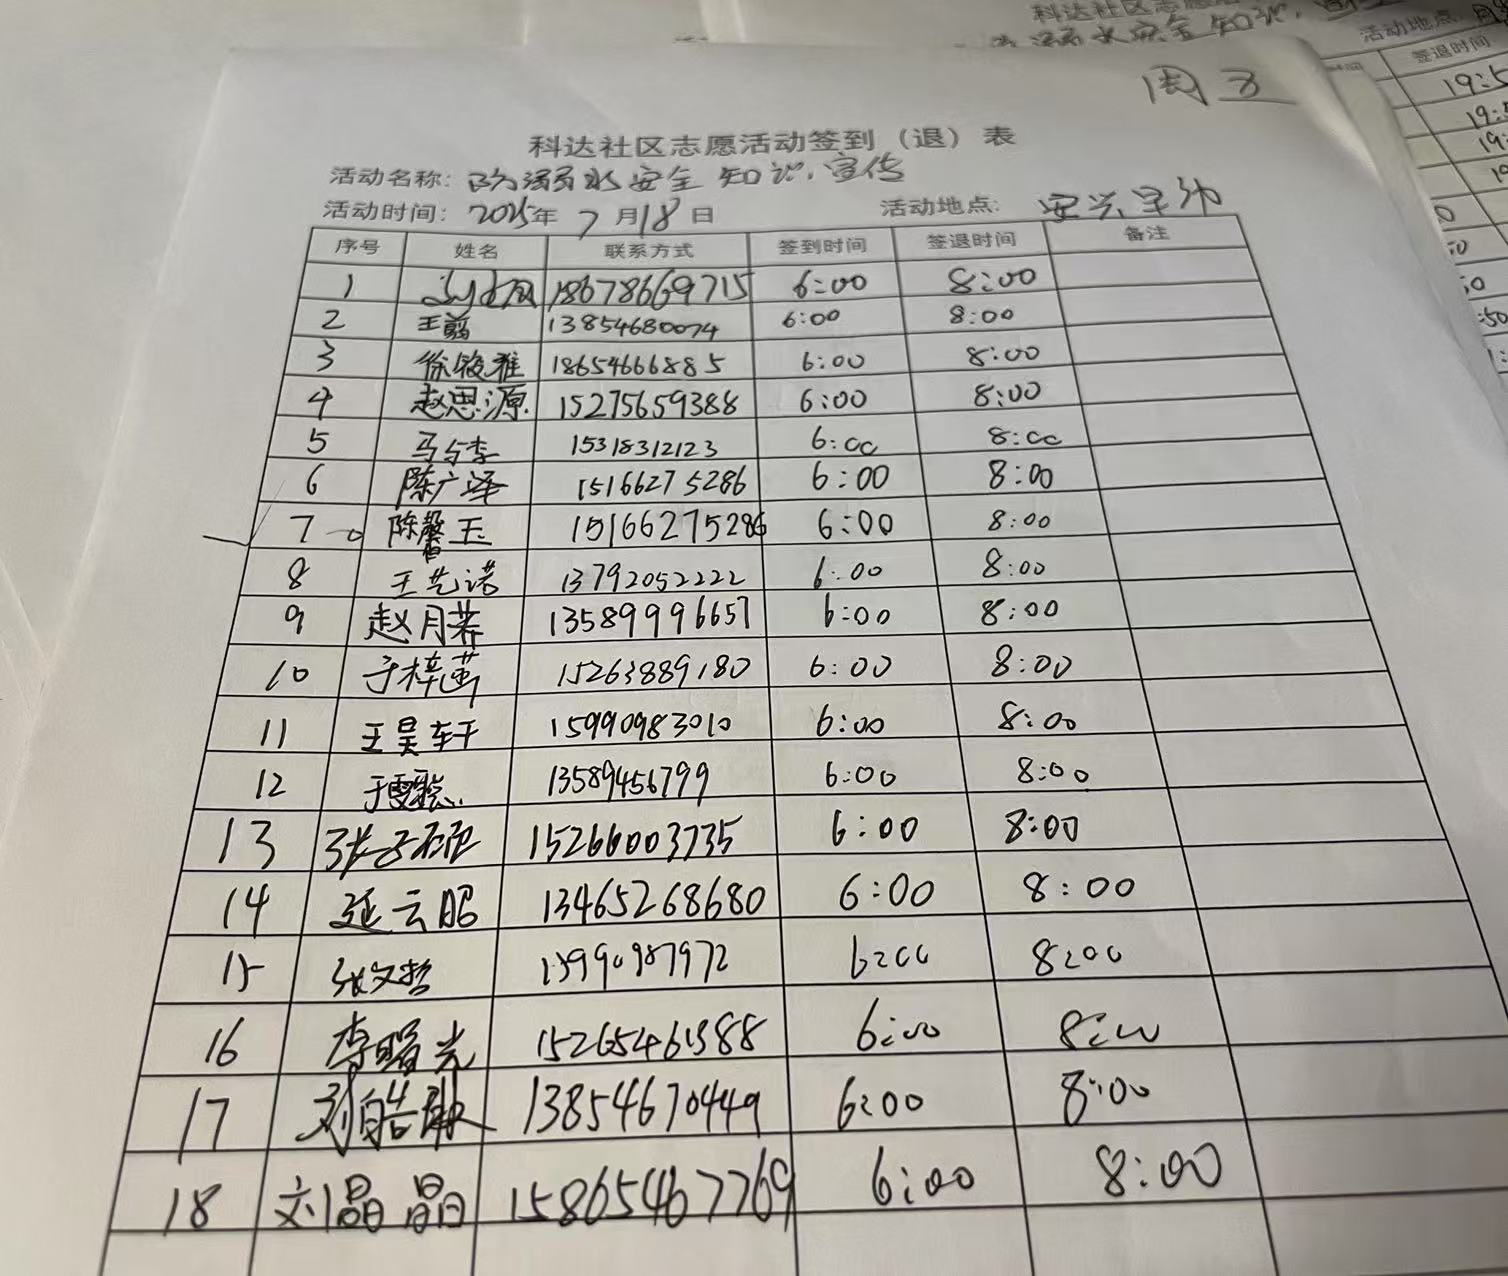 周五
科达社区志愿活动签到（退）表
活动名称：防溺水安全知识宣传
活动时间：2025年 7月18日 活动地点：
序号 姓名 联系方式 签到时间 签退时间 备注
1 18678669715 6:00 8:00
2 王翦 13854680074 6:00 8:00
3 徐骏雅 18654666885 6:00 8:00
4 赵思源 15275659388 6:00 8:00
5 马与李 15318312123 6:00 8:00
6 陈广泽 15166275286 6:00 8:00
7 陈馨玉 15166275286 6:00 8:00
8 王艺诺 13792052222 6:00 8:00
9 赵月荞 13589996657 6:00 8:00
10 于梓茜 15263889180 6:00 8:00
11 王昊轩 15990983010 6:00 8:00
12 13589456799 6:00 8:00
13 15266003735 6:00 8:00
14 延云昭 13465268680 6:00 8:00
15 张文哲 15990987972 6:00 8:00
16 李曙光 15265461388 6:00 8:00
17 13854670449 6:00 8:00
18 刘晶晶 15865467769 6:00 8:00
科达社区志愿
溺水安全知识
活动地点
签退时间